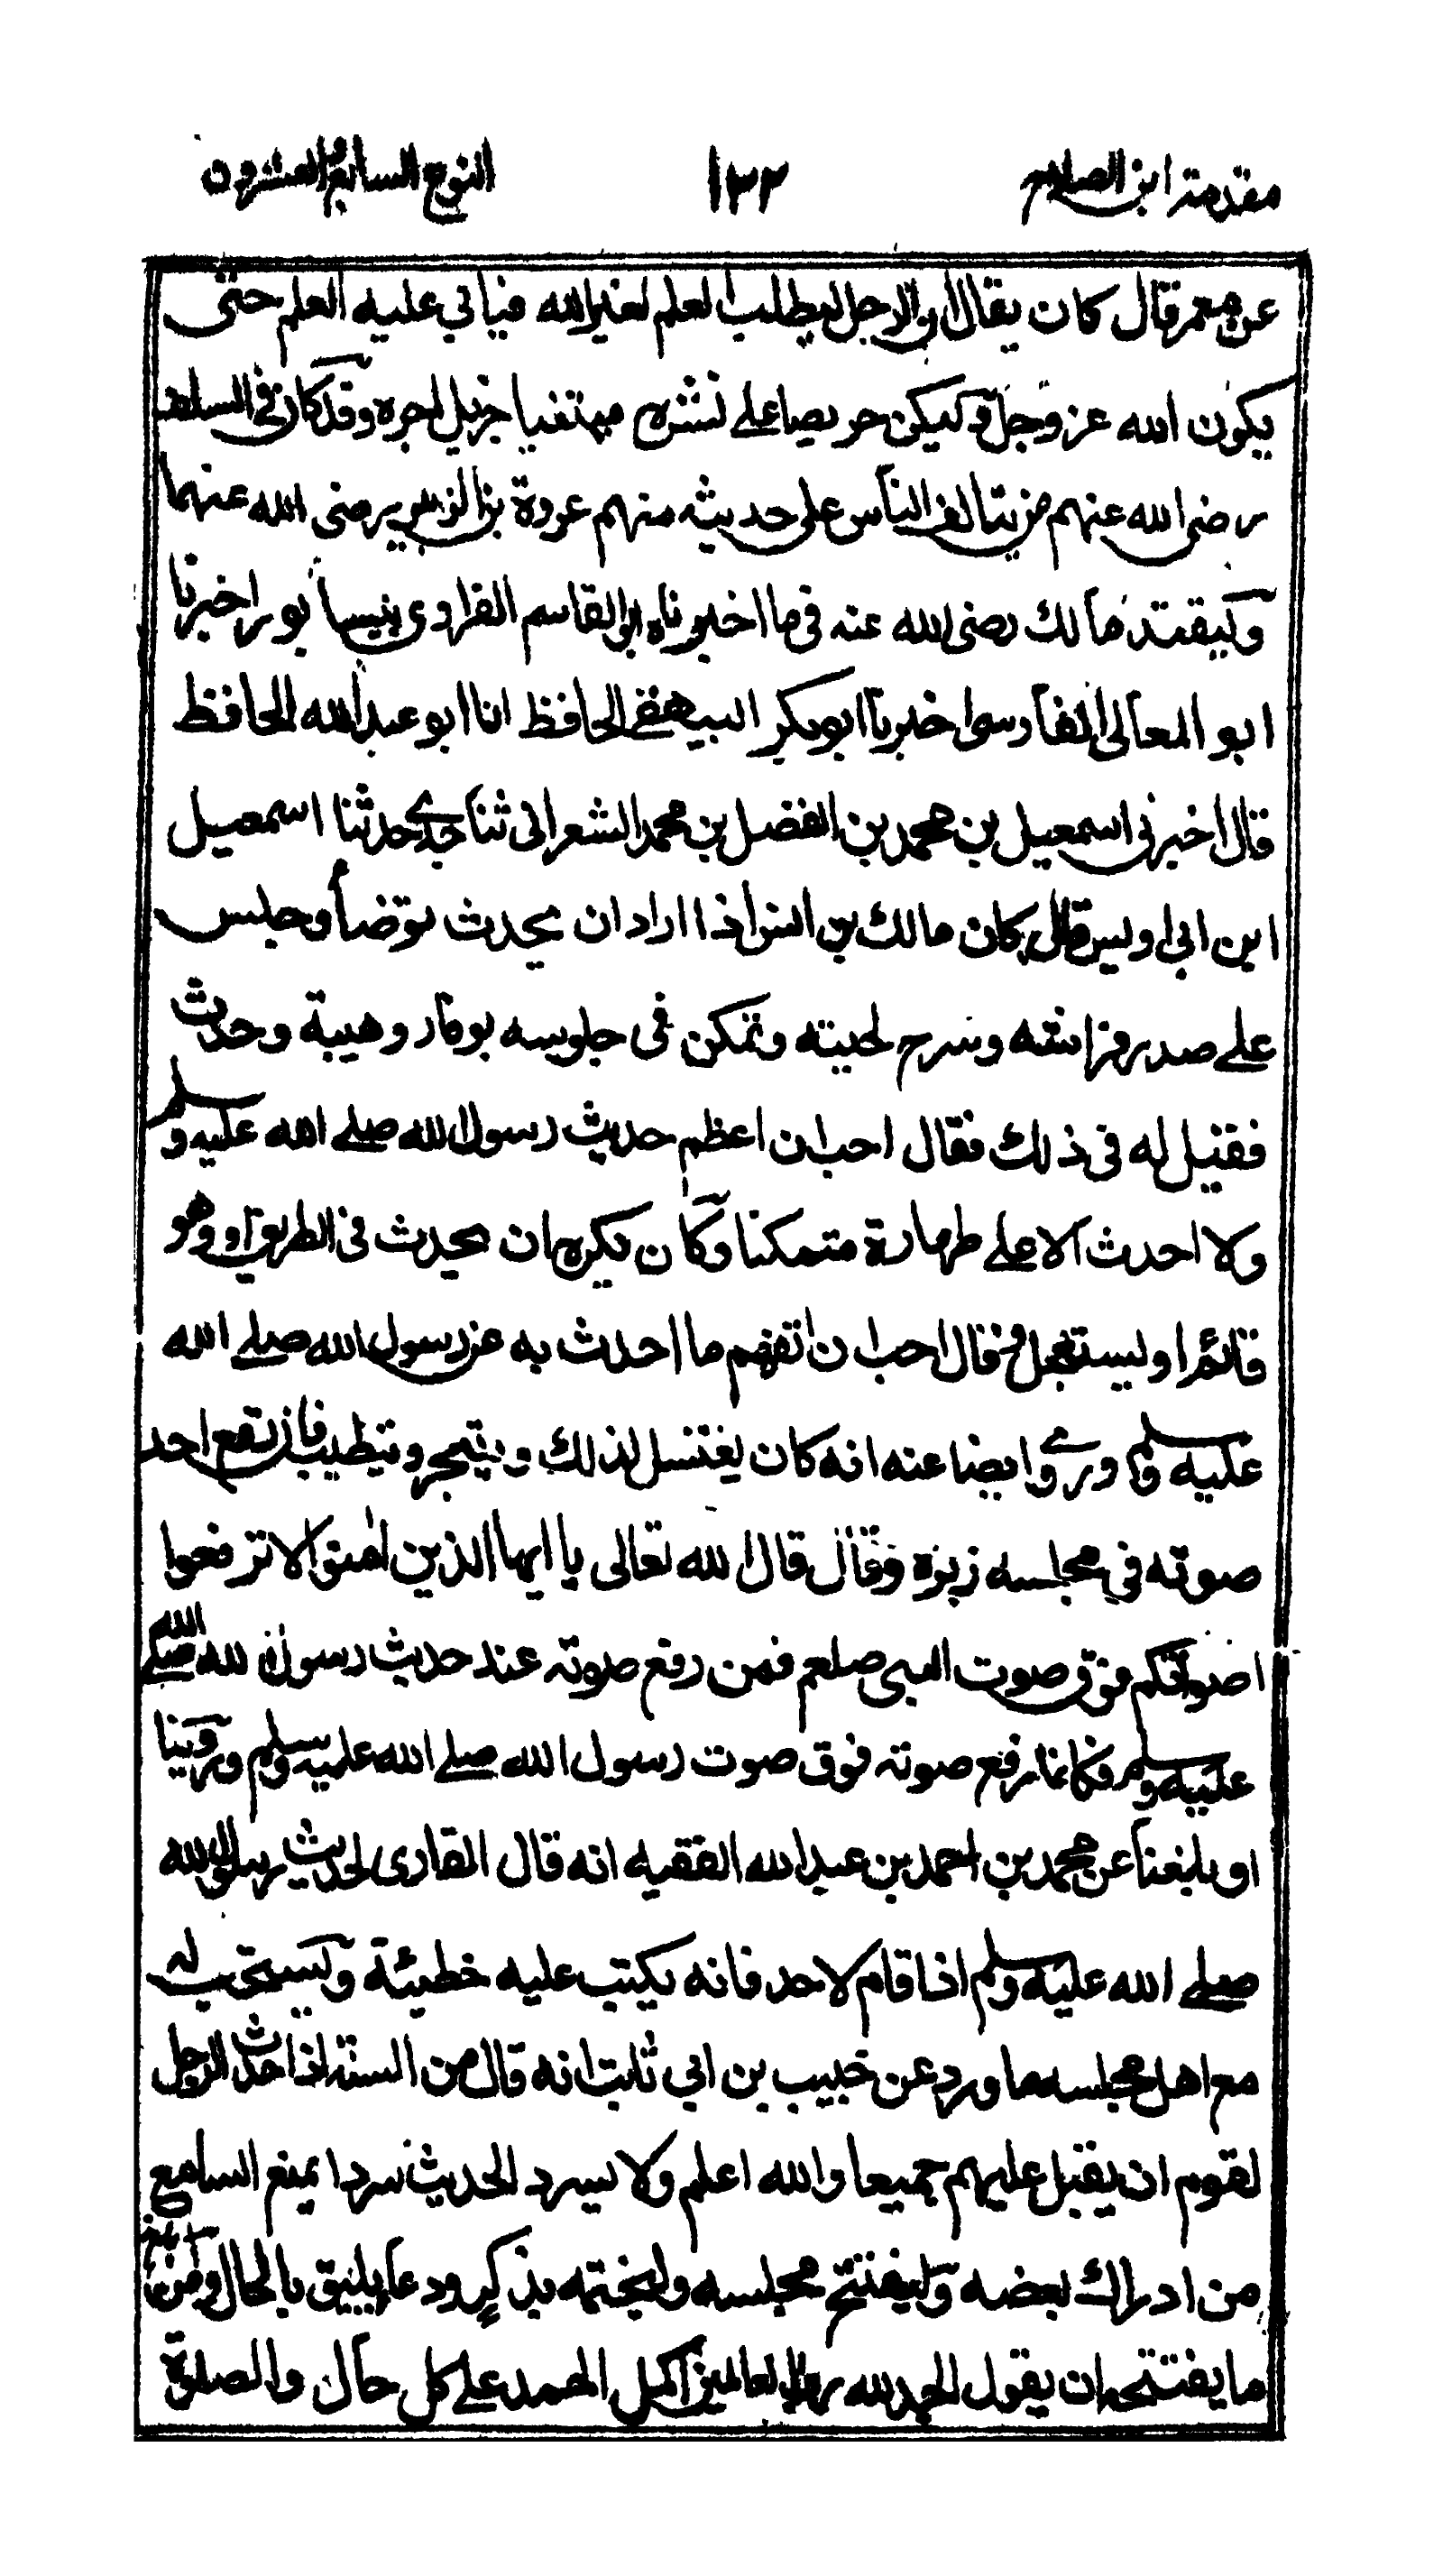 مقدمة ابن الصلاح ١٣٢ النوع السابع العشرون
عن معمر قال كان يقال ان الرجل ليطلب العلم لغير الله فيابي عليه العلم حتى
يكون الله عز وجل وليكن حريصا على نشره مبتغيا جزيل اجره وقد كان فى السلف
رضى الله عنهم من يتالف الناس على حديثه منهم عروة بن الزبير رضى الله عنهما
وليقتد مالك رضى الله عنه فى ما اخبرناه ابو القاسم الفراوى بنيسابور اخبرنا
ابو المعالى الفارسى اخبرنا ابو بكر البيهقى الحافظ انا ابو عبد الله الحافظ
قال اخبرنى اسمعيل بن محمد بن الفضل بن محمد الشعرانى ثنا جدى حدثنا اسمعيل
ابن ابى اويس قال كان مالك بن انس اذا اراد ان يحدث توضأ وجلس
على صدر فراشه وسرح لحيته وتمكن فى جلوسه بوقار وهيبة وحدث
فقيل له فى ذلك فقال احب ان اعظم حديث رسول الله صلى الله عليه وسلم
ولا احدث الا على طهارة متمكنا وكان يكره ان يحدث فى الطريق او وهو
قائم او يستعجل فقال احب ان اتفهم ما احدث به عن رسول الله صلى الله
عليه وسلم وروى ايضا عنه انه كان يغتسل لذلك ويتبخر ويتطيب فان رفع احد
صوته في مجلسه زبره وقال قال الله تعالى يا ايها الذين اٰمنوا لا ترفعوا
اصواتكم فوق صوت النبى صلعم فمن رفع صوته عند حديث رسول الله صلى الله
عليه وسلم فكانما رفع صوته فوق صوت رسول الله صلى الله عليه وسلم وروينا
او بلغنا عن محمد بن احمد بن عبد الله الفقيه انه قال القارى لحديث رسول الله
صلى الله عليه وسلم اذا قام لاحد فانه يكتب عليه خطيئة ويستحب له
مع اهل مجلسه ما ورد عن حبيب بن ابي ثابت انه قال من السنة اذا حدث الرجل
لقوم ان يقبل عليهم جميعا والله اعلم ولا يسرد الحديث سردا يمنع السامع
من ادراك بعضه وليفتتح مجلسه وليختمه بذكر ودعا يليق بالحال ومن
ما يفتتحه ان يقول الحمد لله رب العالمين اكمل الحمد على كل حال والصلوة